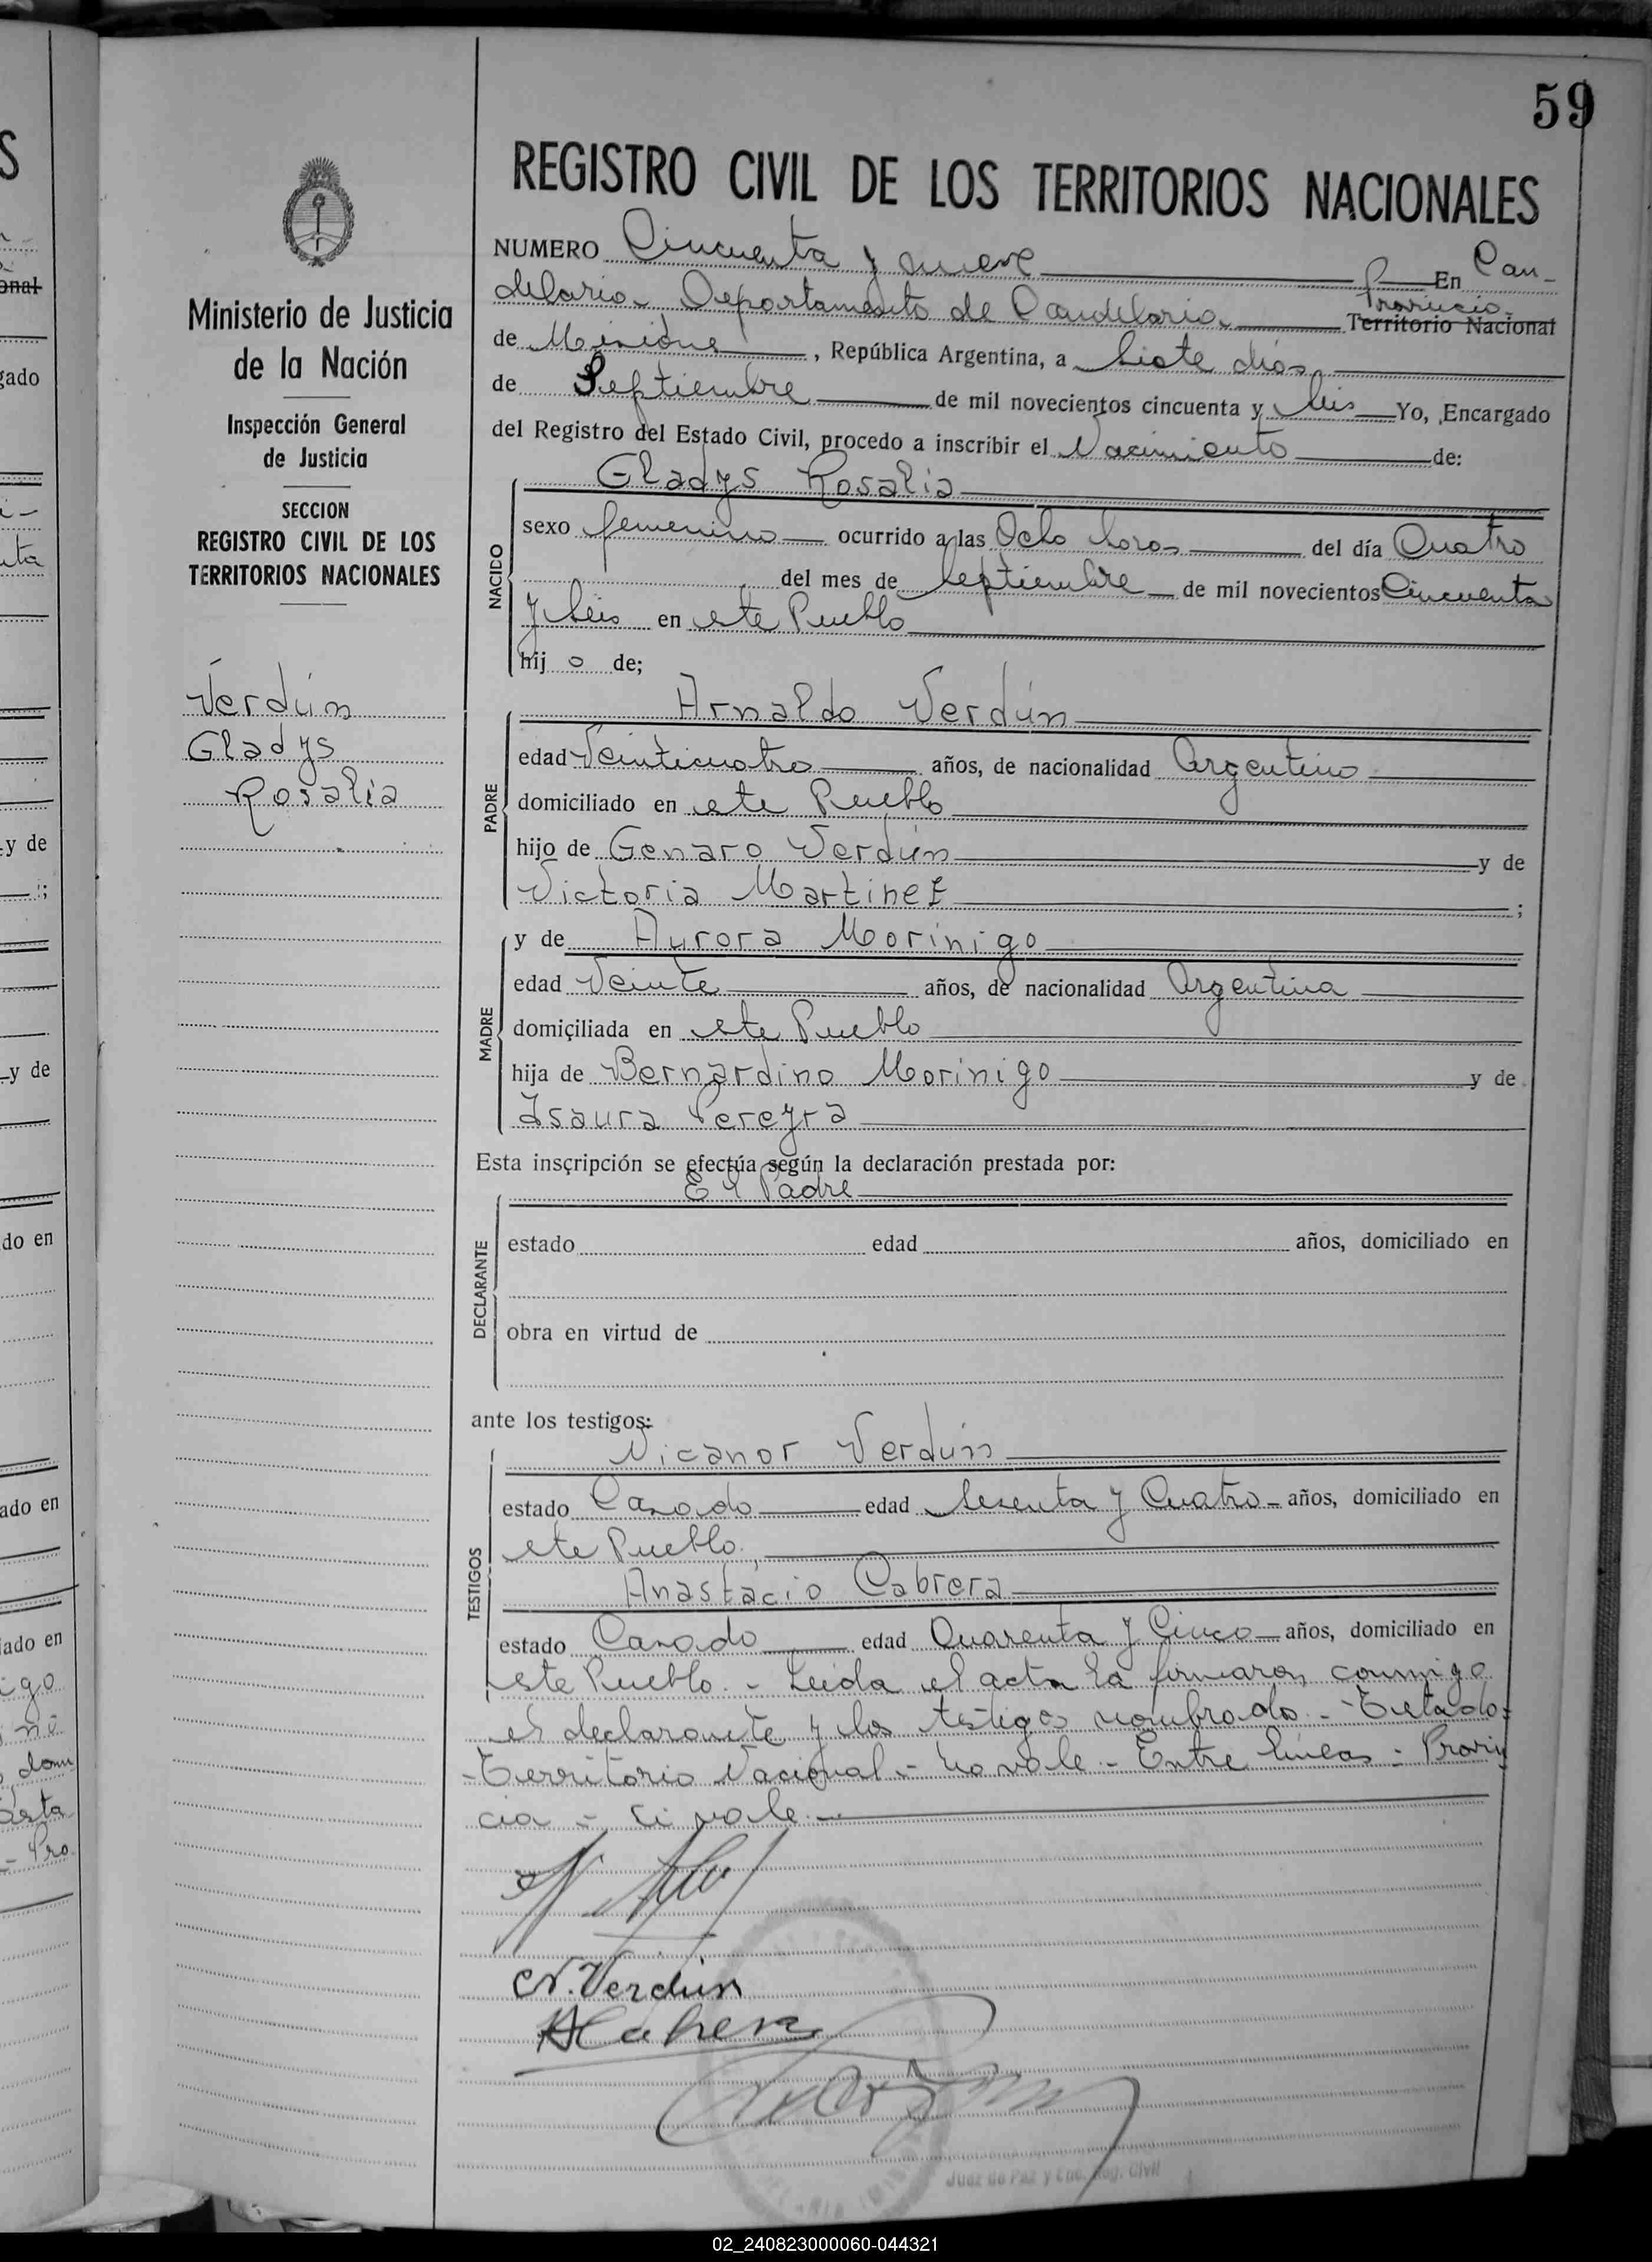 59
REGISTRO CIVIL DE LOS TERRITORIOS NACIONALES
Ministerio de Justicia
de la Nación
Inspección General
de Justicia
SECCION
REGISTRO CIVIL DE LOS
TERRITORIOS NACIONALES
Verdún
Gladys
Rosalia
NUMERO Cincuenta y nueve En Can-
delaria Departamento de Candelaria Provincia Territorio Nacional
de Misiones, República Argentina, a Siete días
de Septiembre de mil novecientos cincuenta y seis Yo, Encargado
del Registro del Estado Civil, procedo a inscribir el Nacimiento de:
NACIDO
Gladys Rosalia
sexo femenino ocurrido a las Ocho horas del día Cuatro
del mes de septiembre de mil novecientos Cincuenta
y Seis en este Pueblo
hij o de;
PADRE
Arnaldo Verdún
edad Veinticuatro años, de nacionalidad Argentino
domiciliado en este Pueblo
hijo de Genaro Verdún y de
Victoria Martinez ;
MADRE
y de Aurora Morinigo
edad Veinte años, de nacionalidad Argentina
domiciliada en este Pueblo
hija de Bernardino Morinigo y de
Isaura Pereyra
Esta inscripción se efectúa según la declaración prestada por:
DECLARANTE
El Padre
estado edad años, domiciliado en
obra en virtud de
ante los testigos:
TESTIGOS
Nicanor Verdún
estado Casado edad Sesenta y Cuatro años, domiciliado en
este Pueblo.
Anastacio Cabrera
estado Casado edad Cuarenta y Cinco años, domiciliado en
este Pueblo. - Leida el acta la firmaron conmigo
el declarante y los testigos nombrados. - Testado:
- Territorio Nacional - no vale - Entre líneas - Provin
cia - si vale. -
N. Verdún
A Cabrera
Juez de Paz y Enc. Reg. Civil
y de
y de
do en
ado en
iado en
02_240823000060-044321